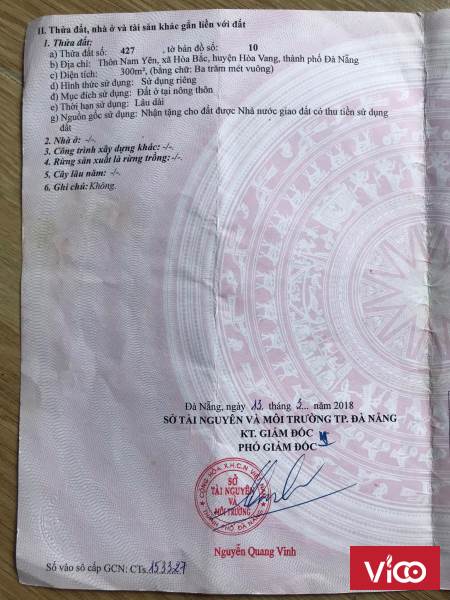 II. Thửa đất, nhà ở và tài sản khác gắn liền với đất
1. Thửa đất:
a) Thửa đất số: 427 , tờ bản đồ số: 10
b) Địa chỉ: Thôn Nam Yên, xã Hòa Bắc, huyện Hòa Vang, thành phố Đà Nẵng
c) Diện tích: 300m², (bằng chữ: Ba trăm mét vuông)
d) Hình thức sử dụng: Sử dụng riêng
đ) Mục đích sử dụng: Đất ở tại nông thôn
e) Thời hạn sử dụng: Lâu dài
g) Nguồn gốc sử dụng: Nhận tặng cho đất được Nhà nước giao đất có thu tiền sử dụng
đất
2. Nhà ở: -/-.
3. Công trình xây dựng khác: -/-.
4. Rừng sản xuất là rừng trồng: -/-.
5. Cây lâu năm: -/-.
6. Ghi chú: Không.
Đà Nẵng, ngày 13. tháng 3... năm 2018
SỞ TÀI NGUYÊN VÀ MÔI TRƯỜNG TP. ĐÀ NẴNG
KT. GIÁM ĐỐC
PHÓ GIÁM ĐỐC
CỘNG HÒA X.H.C.N VIỆT NAM
SỞ
TÀI NGUYÊN
VÀ
MÔI TRƯỜNG
THÀNH PHỐ ĐÀ NẴNG
Nguyễn Quang Vinh
Số vào sổ cấp GCN: CTs.153327
Vico